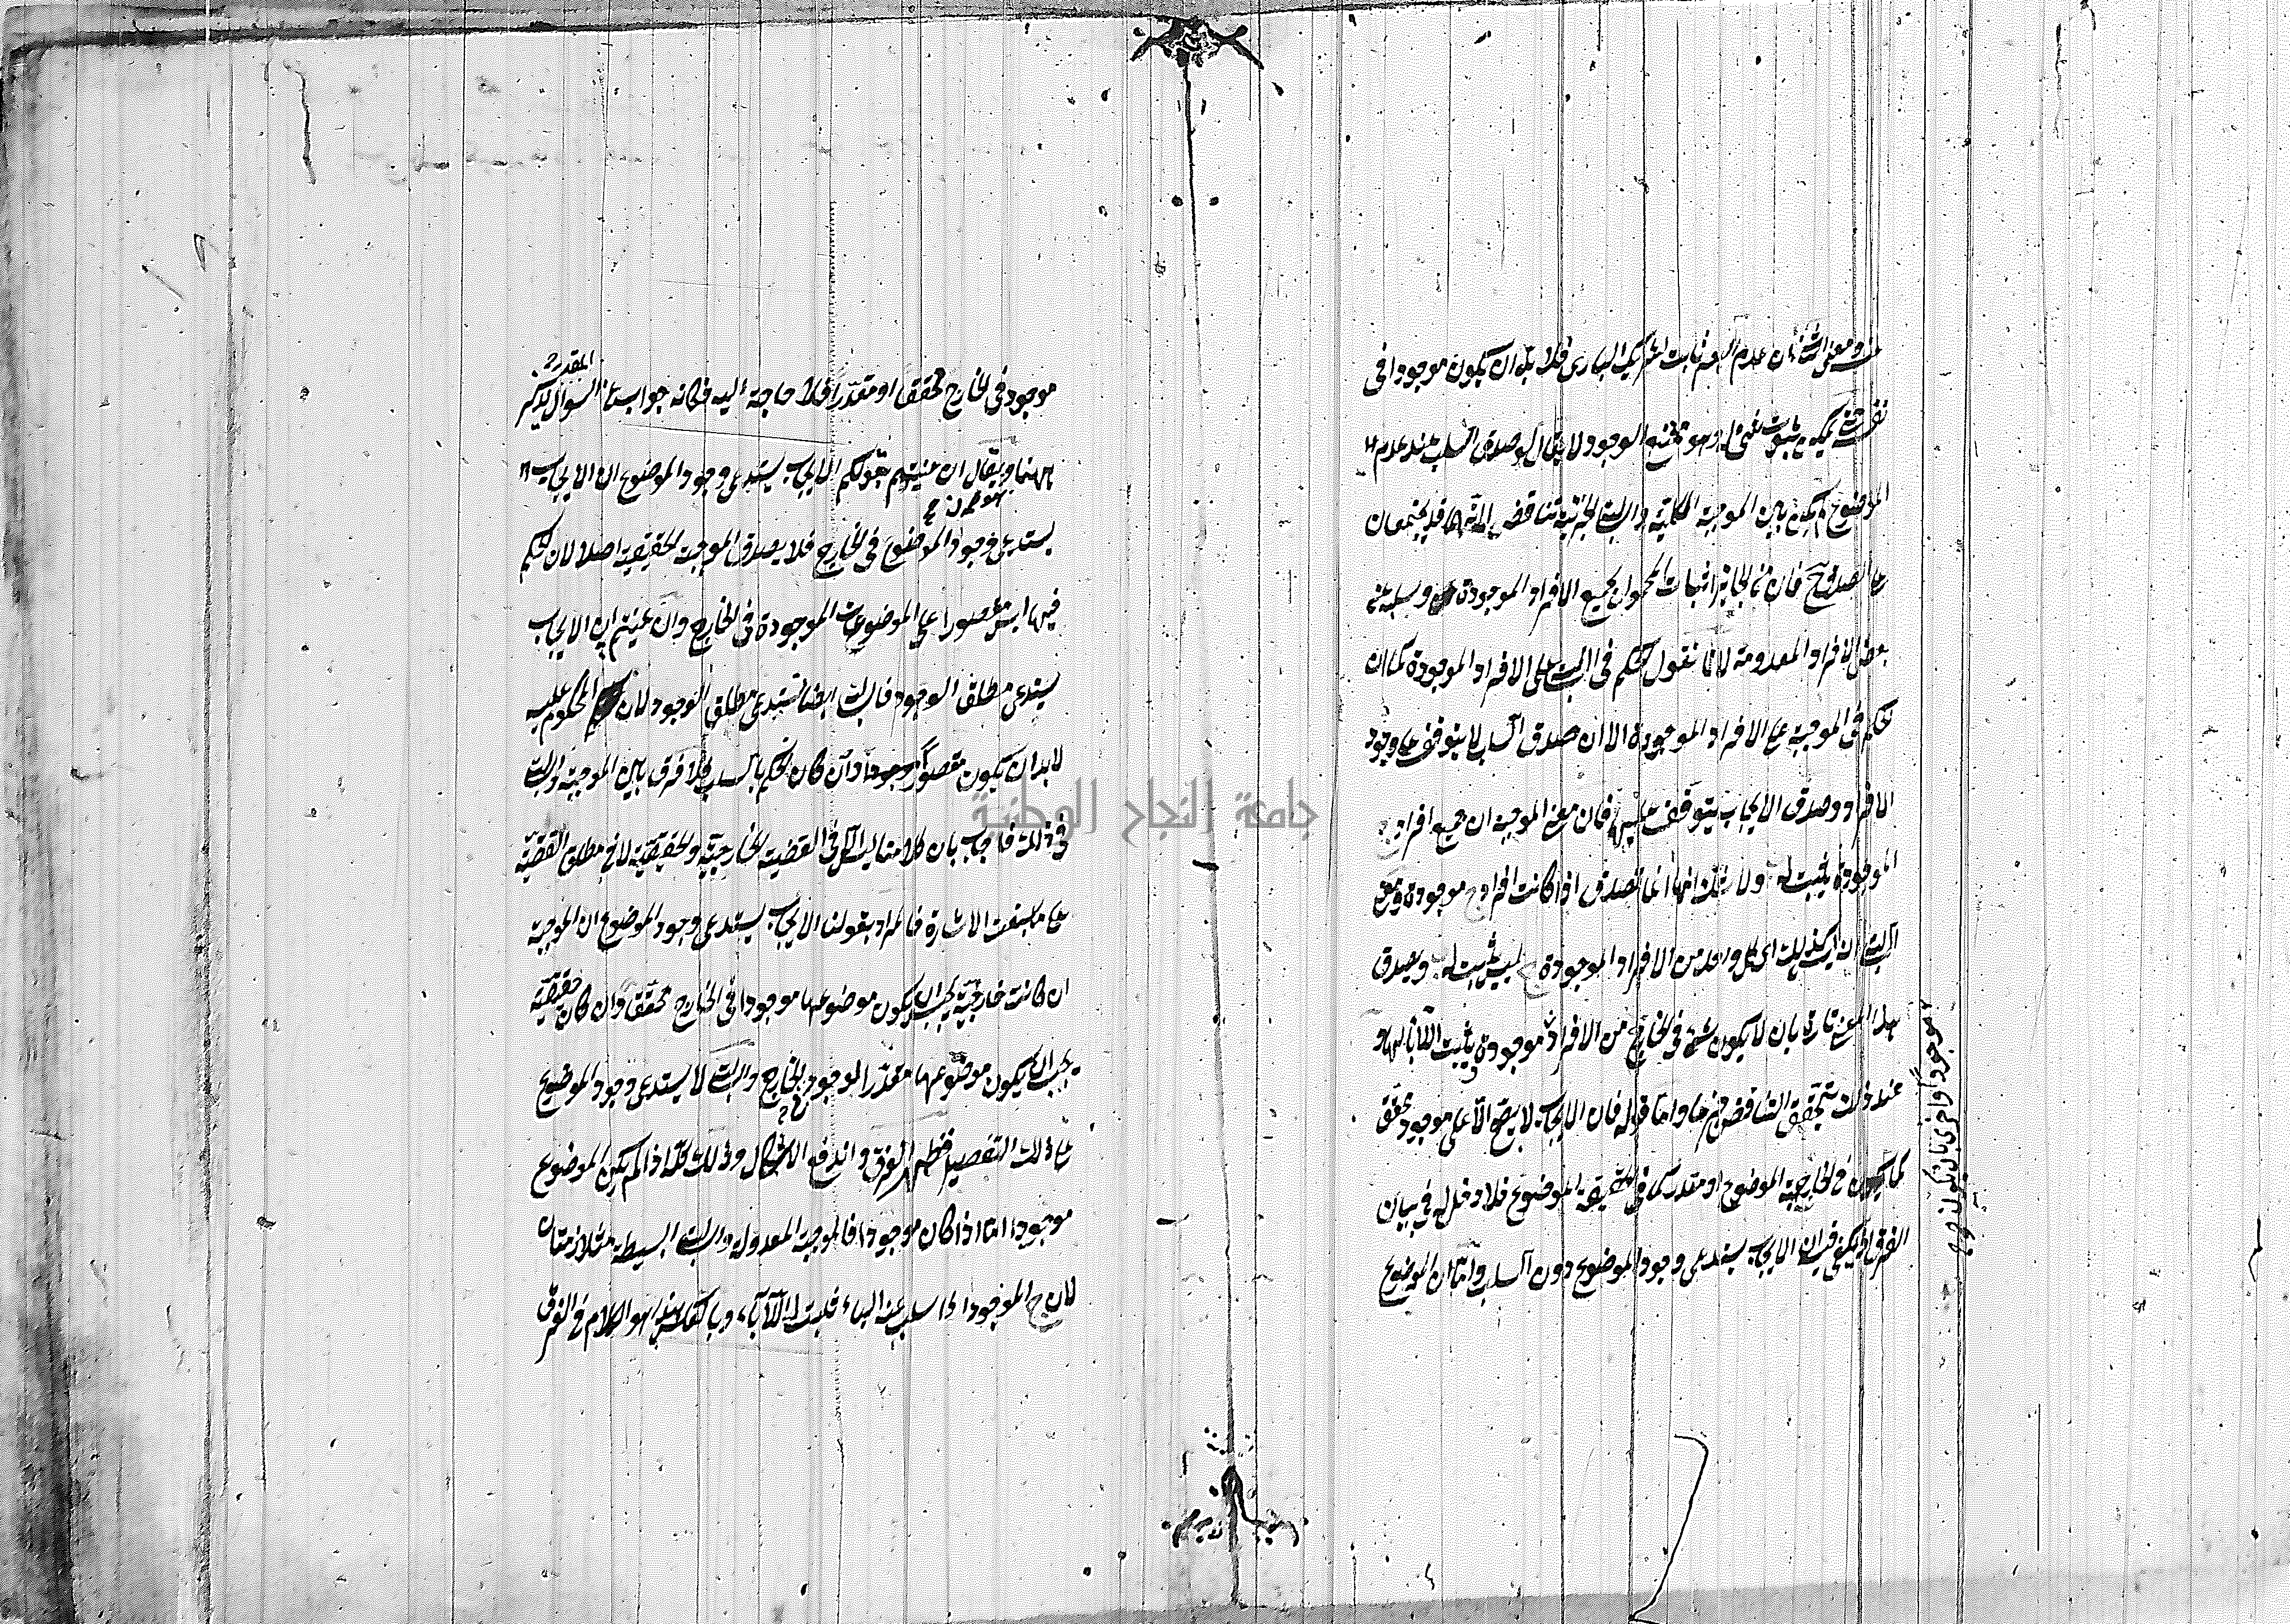 ومعنى الثانى ان عدم البصر ثابت لشريك البارى فلا بد ان يكون موجودا فى
نفسه حتى يمكن ثبوت شئ له وهو ممتنع الوجود لا يقال لو صدق السلب عند عدم
الموضوع لم يكن بين الموجبة الكلية والسالبة الجزئية تناقض لانهما قد يجتمعان
على الصدق ح فان من الجايز اثبات المحمول لجميع الافراد الموجودة وسلبه عن
بعض الافراد المعدومة لانا نقول الحكم فى السالبة على الافراد الموجودة كما ان
الحكم فى الموجبة على الافراد الموجودة الا ان صدق السلب لا يتوقف على وجود
الافراد وصدق الايجاب يتوقف عليها فان معنى الموجبة ان جميع افراد
الموجودة يثبت له ولا شك انها انما تصدق اذا كانت افراد ج موجودة ومعنى
السالبة انه ليس كذلك اى كل واحد من الافراد الموجودة ج ليس يثبت له ب ويصدق
هذا المعنى تارة بان لا يكون شئ فى الخارج من الافراد موجودة يثبت اللاباء لها و
موجودا واخرى بان تكون
عند ذلك تتحقق التناقض جزما واما قوله فان الايجاب لا يصح الا على موجود محقق
كما فى الخارجية الموضوع او مقدر كما فى الحقيقية الموضوع فلا دخل له فى بيان
الفرق اذ يكفى فيه ان الايجاب يستدعى وجود الموضوع دون السلب واما ان الموضوع
موجود فى الخارج محققا او مقدرا فلا حاجة اليه فكانه جواب عن السوال المقدر يذكر
ههنا ويقال ان عنيتم بقولكم الايجاب يستدعى وجود الموضوع ان الايجاب
يستدعى وجود الموضوع فى الخارج فلا يصدق الموجبة الحقيقية اصلا لان الحكم
فيها ليس مقصورا على الموضوعات الموجودة فى الخارج وان عنيتم ان الايجاب
يستدعى مطلق الوجود فالسالبة ايضا تستدعى مطلق الوجود لان المحكوم عليه
لا بد ان يكون متصورا وان كان الحكم بالسلب فلا فرق بين الموجبة والسالبة
فى ذلك فاجاب بان كلامنا ليس الا فى القضية الخارجية والحقيقية لا فى مطلق القضية
على ما سبقت الاشارة فالمراد بقولنا الايجاب يستدعى وجود الموضوع ان الموجبة
ان كانت خارجية يجب ان يكون موضوعها موجودا فى الخارج محققا وان كان حقيقية
يجب ان يكون موضوعها مقدر الوجود فى الخارج والسالبة لا يستدعى وجود الموضوع
على ذلك التفصيل فظهر الفرق واندفع الاشكال وذلك كله اذا لم يكن الموضوع
موجودا اما اذا كان موجودا فالموجبة المعدولة والسالبة البسيطة متلازمتان
لان ج الموجود اذا سلب عنه الباء فثبت له اللاباء وبالعكس هذا هو الكلام فى الفرق
جامعة النجاح الوطنية